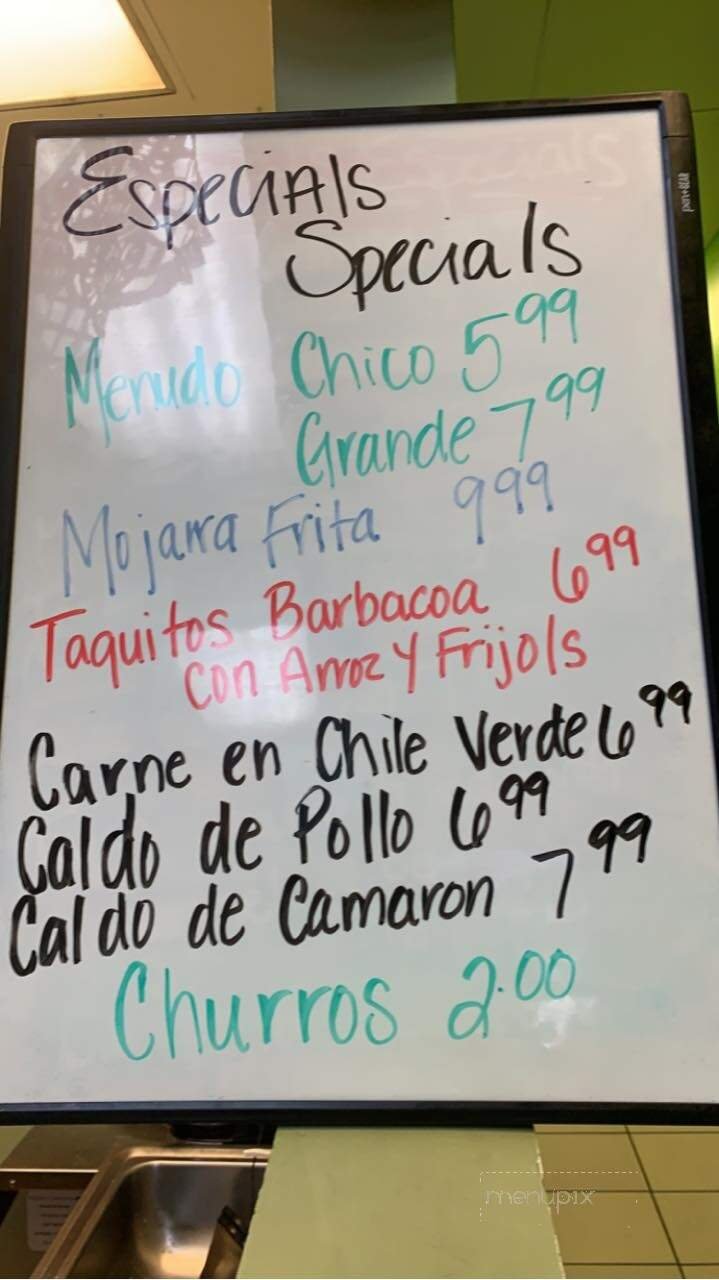 EspeciAls
Specials
Menudo Chico 5 99
Grande 7 99
Mojarra Frita 9 99
Taquitos Barbacoa 6 99
con Arroz y Frijols
Carne en Chile Verde 6 99
Caldo de Pollo 6 99
Caldo de Camaron 7 99
Churros 2.00
menupix